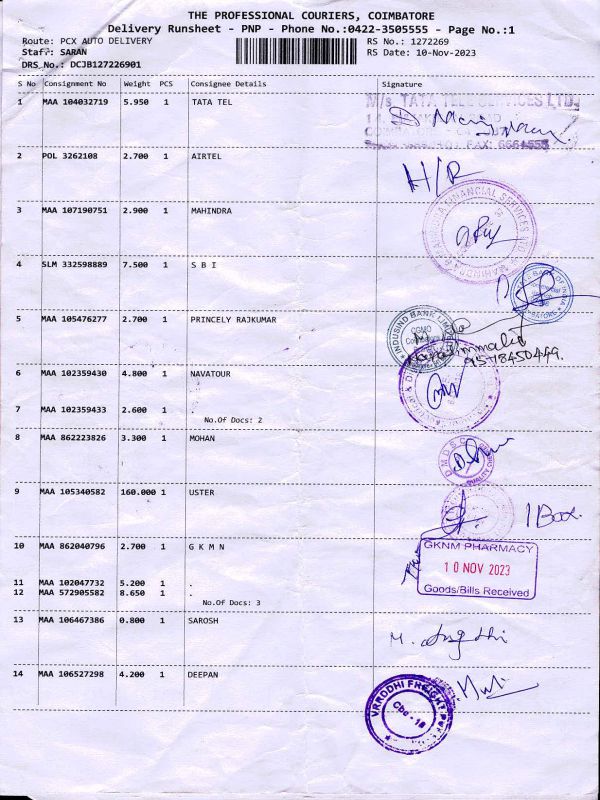 THE PROFESSIONAL COURIERS, COIMBATORE
Delivery Runsheet - PNP - Phone No.:0422-3505555 - Page No.:1
Route: PCX AUTO DELIVERY RS No.: 1272269
Staff: SARAN RS Date: 10-Nov-2023
DRS No.: DCJB127226901
S No Consignment No Weight PCS Consignee Details Signature
1 MAA 104032719 5.950 1 TATA TEL
M/s. TATA TELE SERVICES LTD.
FAX: 6664555
2 POL 3262108 2.700 1 AIRTEL
H/R
3 MAA 107190751 2.900 1 MAHINDRA
FINANCIAL SERVICES LTD
4 SLM 332598889 7.500 1 S B I
BANK OF INDIA
5 MAA 105476277 2.700 1 PRINCELY RAJKUMAR
INDUSIND BANK LIMITED
CGMO
9578450449.
6 MAA 102359430 4.800 1 NAVATOUR
7 MAA 102359433 2.600 1 .
No.Of Docs: 2
8 MAA 862223826 3.300 1 MOHAN
DMDSC
9 MAA 105340582 160.000 1 USTER
1 Box.
10 MAA 862040796 2.700 1 G K M N
GKNM PHARMACY
10 NOV 2023
Goods/Bills Received
11 MAA 102047732 5.200 1 .
12 MAA 572905582 8.650 1 .
No.Of Docs: 3
13 MAA 106467386 0.800 1 SAROSH
14 MAA 106527298 4.200 1 DEEPAN
VRRDDHI FREIGHT
Cbe - 18